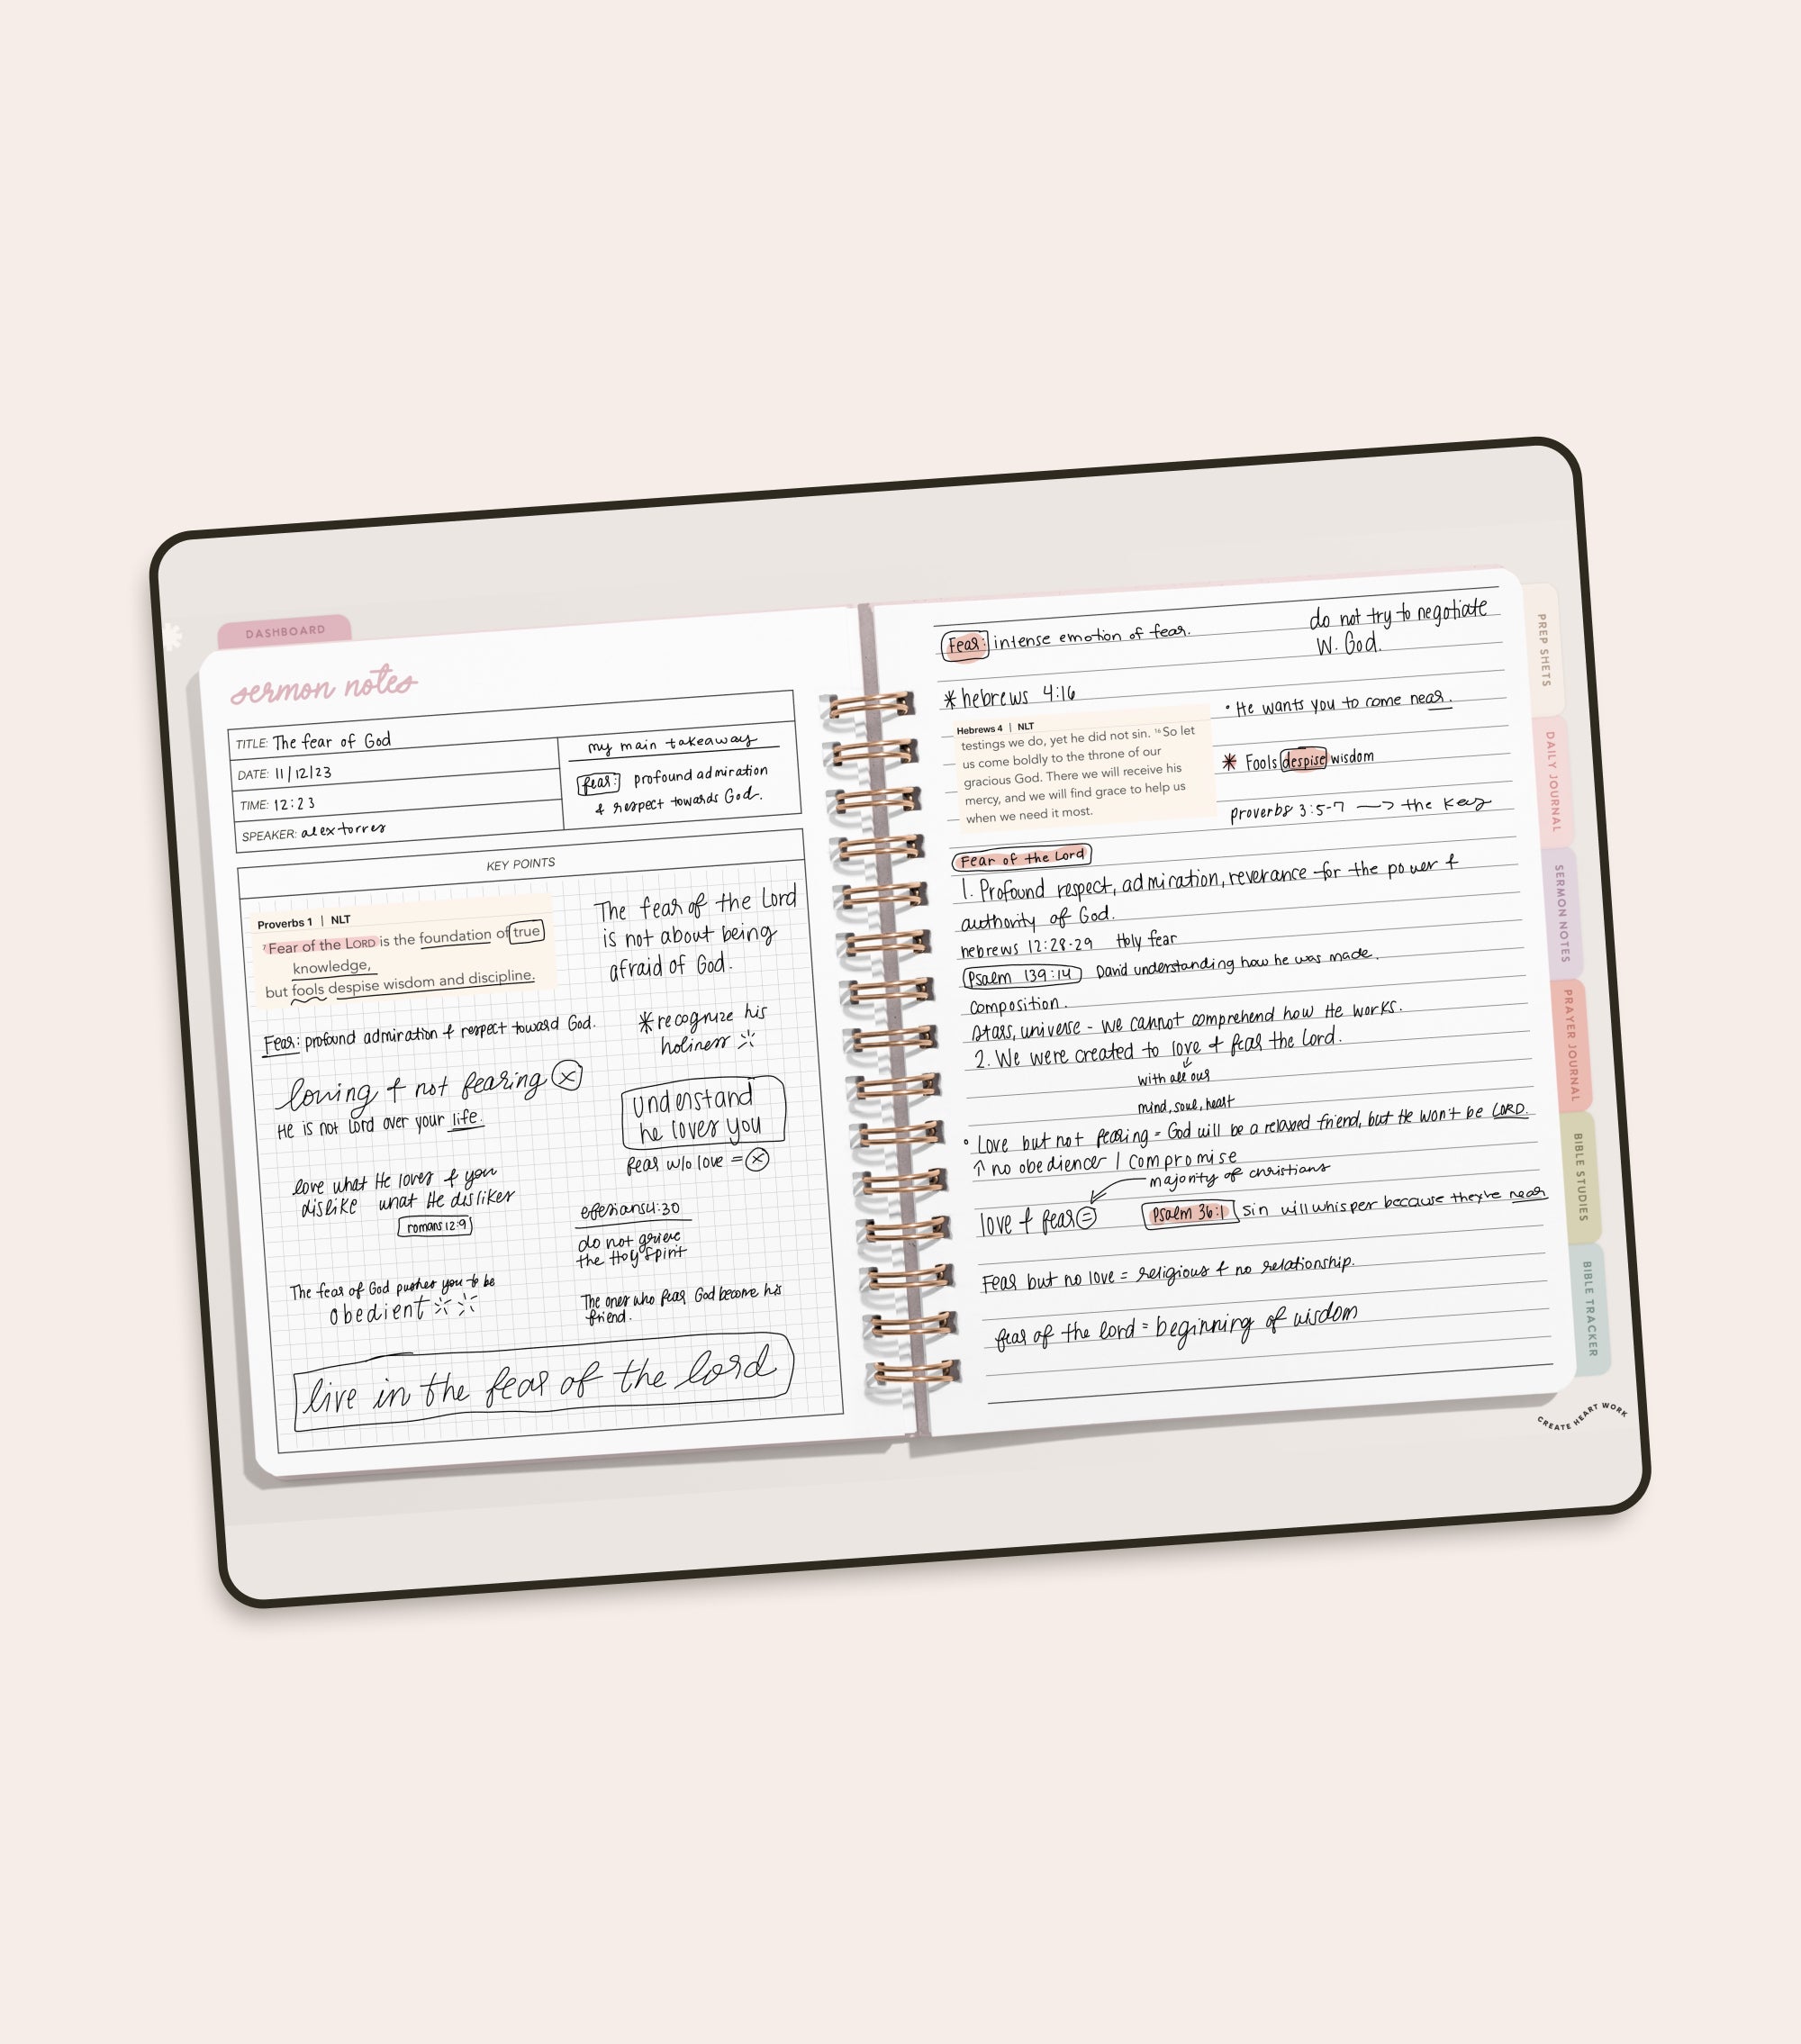 DASHBOARD
sermon notes
TITLE: The fear of God
DATE: 11/12/23
TIME: 12:23
SPEAKER: alex torres
my main takeaway
fear: profound admiration
& respect towards God.
KEY POINTS
Proverbs 1 | NLT
7 Fear of the LORD is the foundation of true
knowledge,
but fools despise wisdom and discipline.
The fear of the Lord
is not about being
afraid of God.
Fear: profound admiration & respect toward God.
*recognize his
holiness
loving & not fearing X
He is not Lord over your life.
understand
he loves you
fear w/o love = X
love what He loves & you
dislike what He dislikes
romans 12:9
efesians 4:30
do not grieve
the Holy Spirit
The fear of God pushes you to be
obedient
The ones who fear God become his
friend.
live in the fear of the lord
Fear: intense emotion of fear.
do not try to negotiate
W. God.
*hebrews 4:16
Hebrews 4 | NLT
testings we do, yet he did not sin. 16 So let
us come boldly to the throne of our
gracious God. There we will receive his
mercy, and we will find grace to help us
when we need it most.
• He wants you to come near.
* Fools despise wisdom
proverbs 3:5-7 —> the key
Fear of the Lord
1. Profound respect, admiration, reverance for the power &
authority of God.
hebrews 12:28-29 Holy fear
Psalm 139:14 David understanding how he was made.
composition.
stars, universe - we cannot comprehend how He works.
2. We were created to love & fear the Lord.
with all our
mind, soul, heart
• Love but not fearing = God will be a relaxed friend, but He won't be LORD.
↑ no obedience / compromise
majority of christians
love & fear =
Psalm 36:1 Sin will whisper because they're near
Fear but no love = religious & no relationship.
fear of the lord = beginning of wisdom
PREP SHETS
DAILY JOURNAL
SERMON NOTES
PRAYER JOURNAL
BIBLE STUDIES
BIBLE TRACKER
CREATE HEART WORK